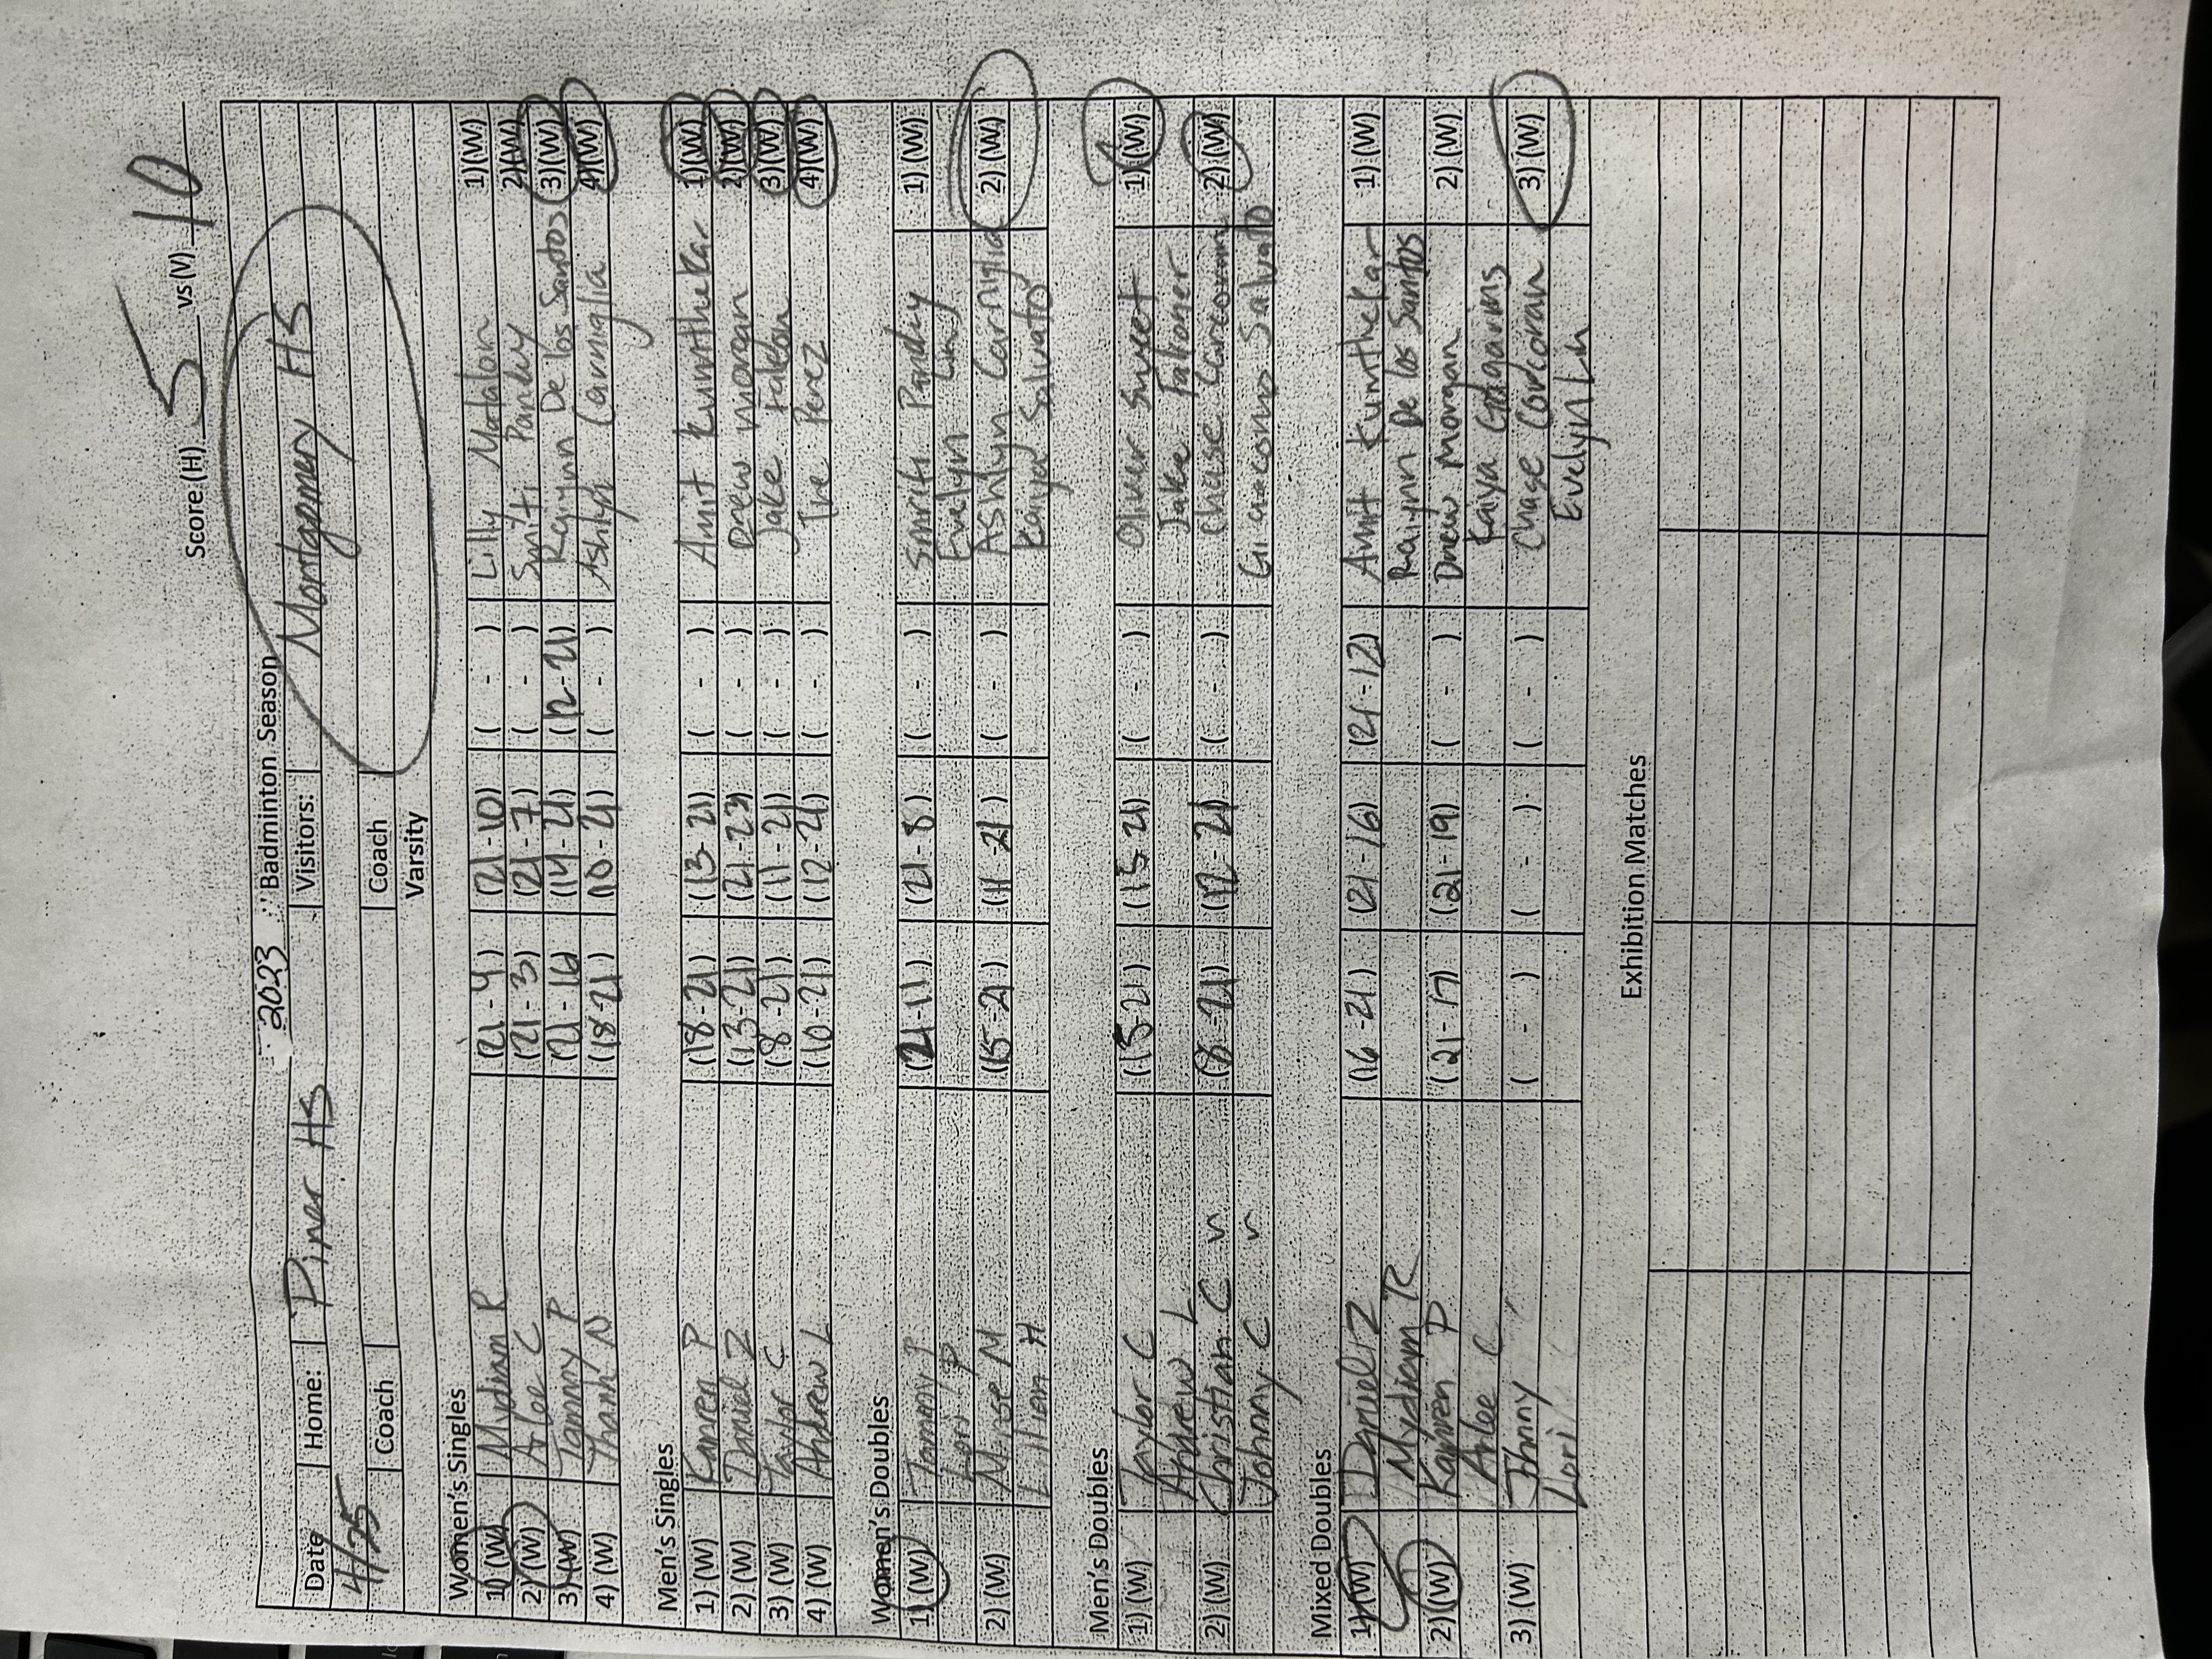 Score (H) 5 vs (V) 10
2023 Badminton Season
Date Home: Piner HS Visitors: Montgomery HS
4/25
Coach Coach
Varsity
Women's Singles
1) (W) Mydian R (21-4) (21-10) ( - ) Lilly Matalon 1) (W)
2) (W) Arlee C (21-3) (21-7) ( - ) Smriti Pandey 2) (W)
3) (W) Tammy P (21-16) (14-21) (12-21) Raiynn De los Santos 3) (W)
4) (W) Thanh N (18-21) (10-21) ( - ) Ashlyn Carniglia 4) (W)
Men's Singles
1) (W) Kanren P (18-21) (13-21) ( - ) Amit Kunthekar 1) (W)
2) (W) Daniel Z (13-21) (21-23) ( - ) Drew Morgan 2) (W)
3) (W) Taylor C (8-21) (11-21) ( - ) Jake 3) (W)
4) (W) Andrew L (10-21) (12-21) ( - ) Tre Perez 4) (W)
Women's Doubles
1) (W) Tammy P (21-11) (21-8) ( - ) Smriti Pandey 1) (W)
Lori P Evelyn Linh
2) (W) M (15-21) (11-21) ( - ) Ashlyn Carniglia 2) (W)
Lilian H Kaiya Salvato
Men's Doubles
1) (W) Taylor C (15-21) (15-21) ( - ) Oliver Sweet 1) (W)
Andrew L Jake
2) (W) Christian C (8-21) (12-21) ( - ) Chase Corcoran 2) (W)
Johnny C Giacomo Salvato
Mixed Doubles
1) (W) Daniel Z (16-21) (21-16) (21-12) Amit Kunthekar 1) (W)
Mydian R Raiynn De los Santos
2) (W) Kanren P (21-17) (21-19) ( - ) Drew Morgan 2) (W)
Arlee C Kaiya
3) (W) Johnny ( - ) ( - ) ( - ) Chase Corcoran 3) (W)
Lori Evelyn Linh
Exhibition Matches